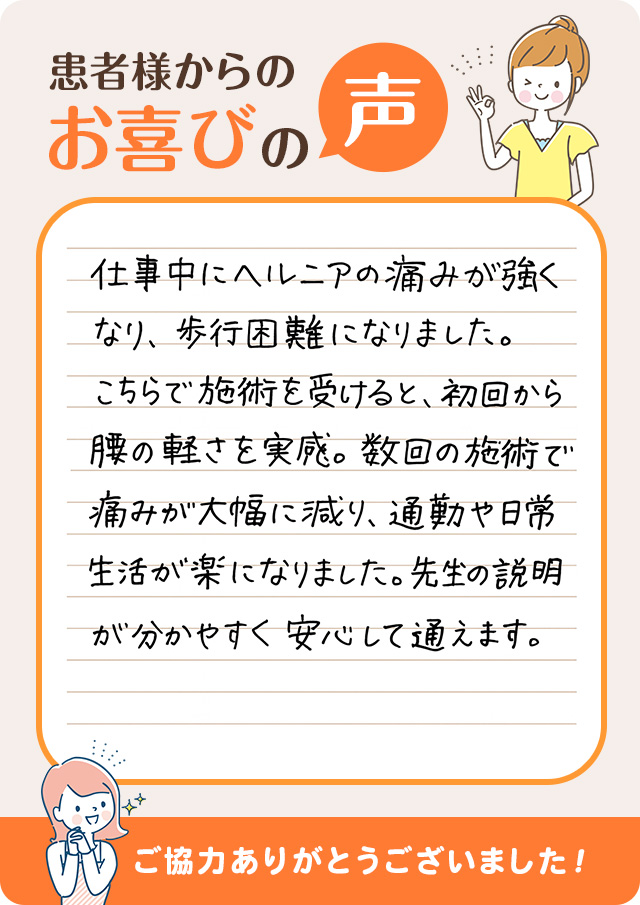 患者様からの
お喜びの声
仕事中にヘルニアの痛みが強く
なり、歩行困難になりました。
こちらで施術を受けると、初回から
腰の軽さを実感。数回の施術で
痛みが大幅に減り、通勤や日常
生活が楽になりました。先生の説明
が分かやすく安心して通えます。
ご協力ありがとうございました!